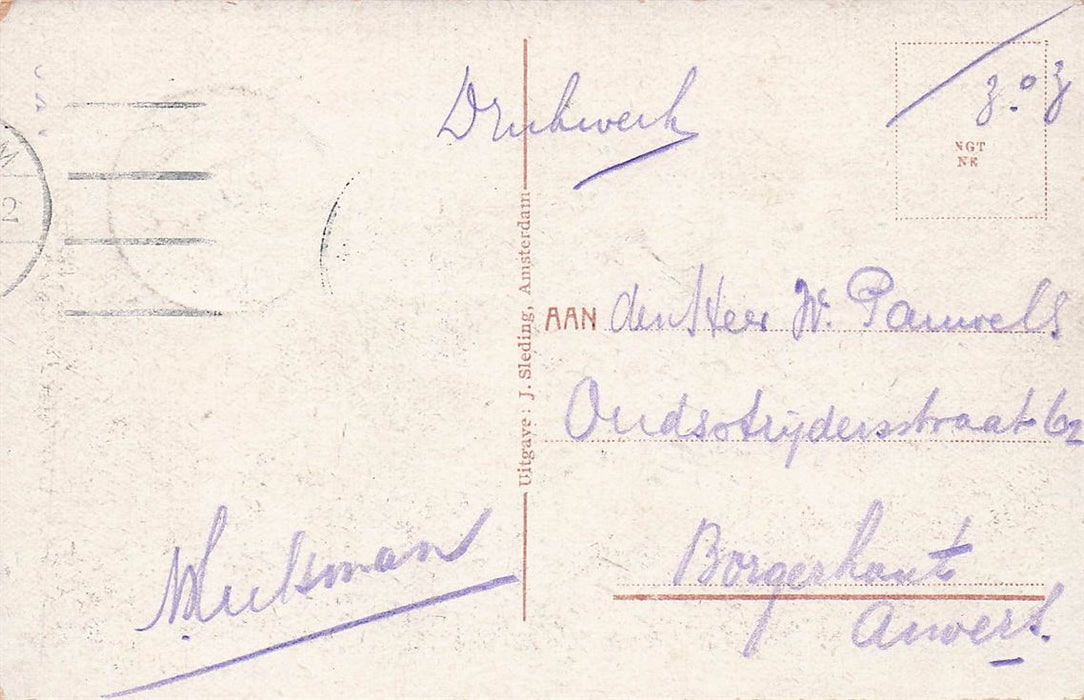 Drukwerk
z.o.z
NGT
NE
M
2
Uitgave: J. Sleding, Amsterdam
AAN den Heer W. Pauwels
Oudstrijdersstraat 62
Borgerhout
Anvers.